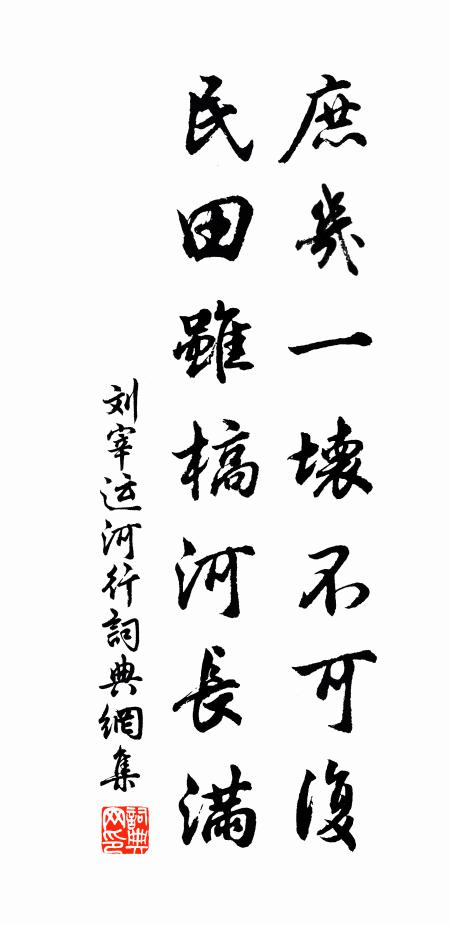 庶幾一壊不可復
民田雖槁河長満
刘宰运河行詞典網集
詞典网印